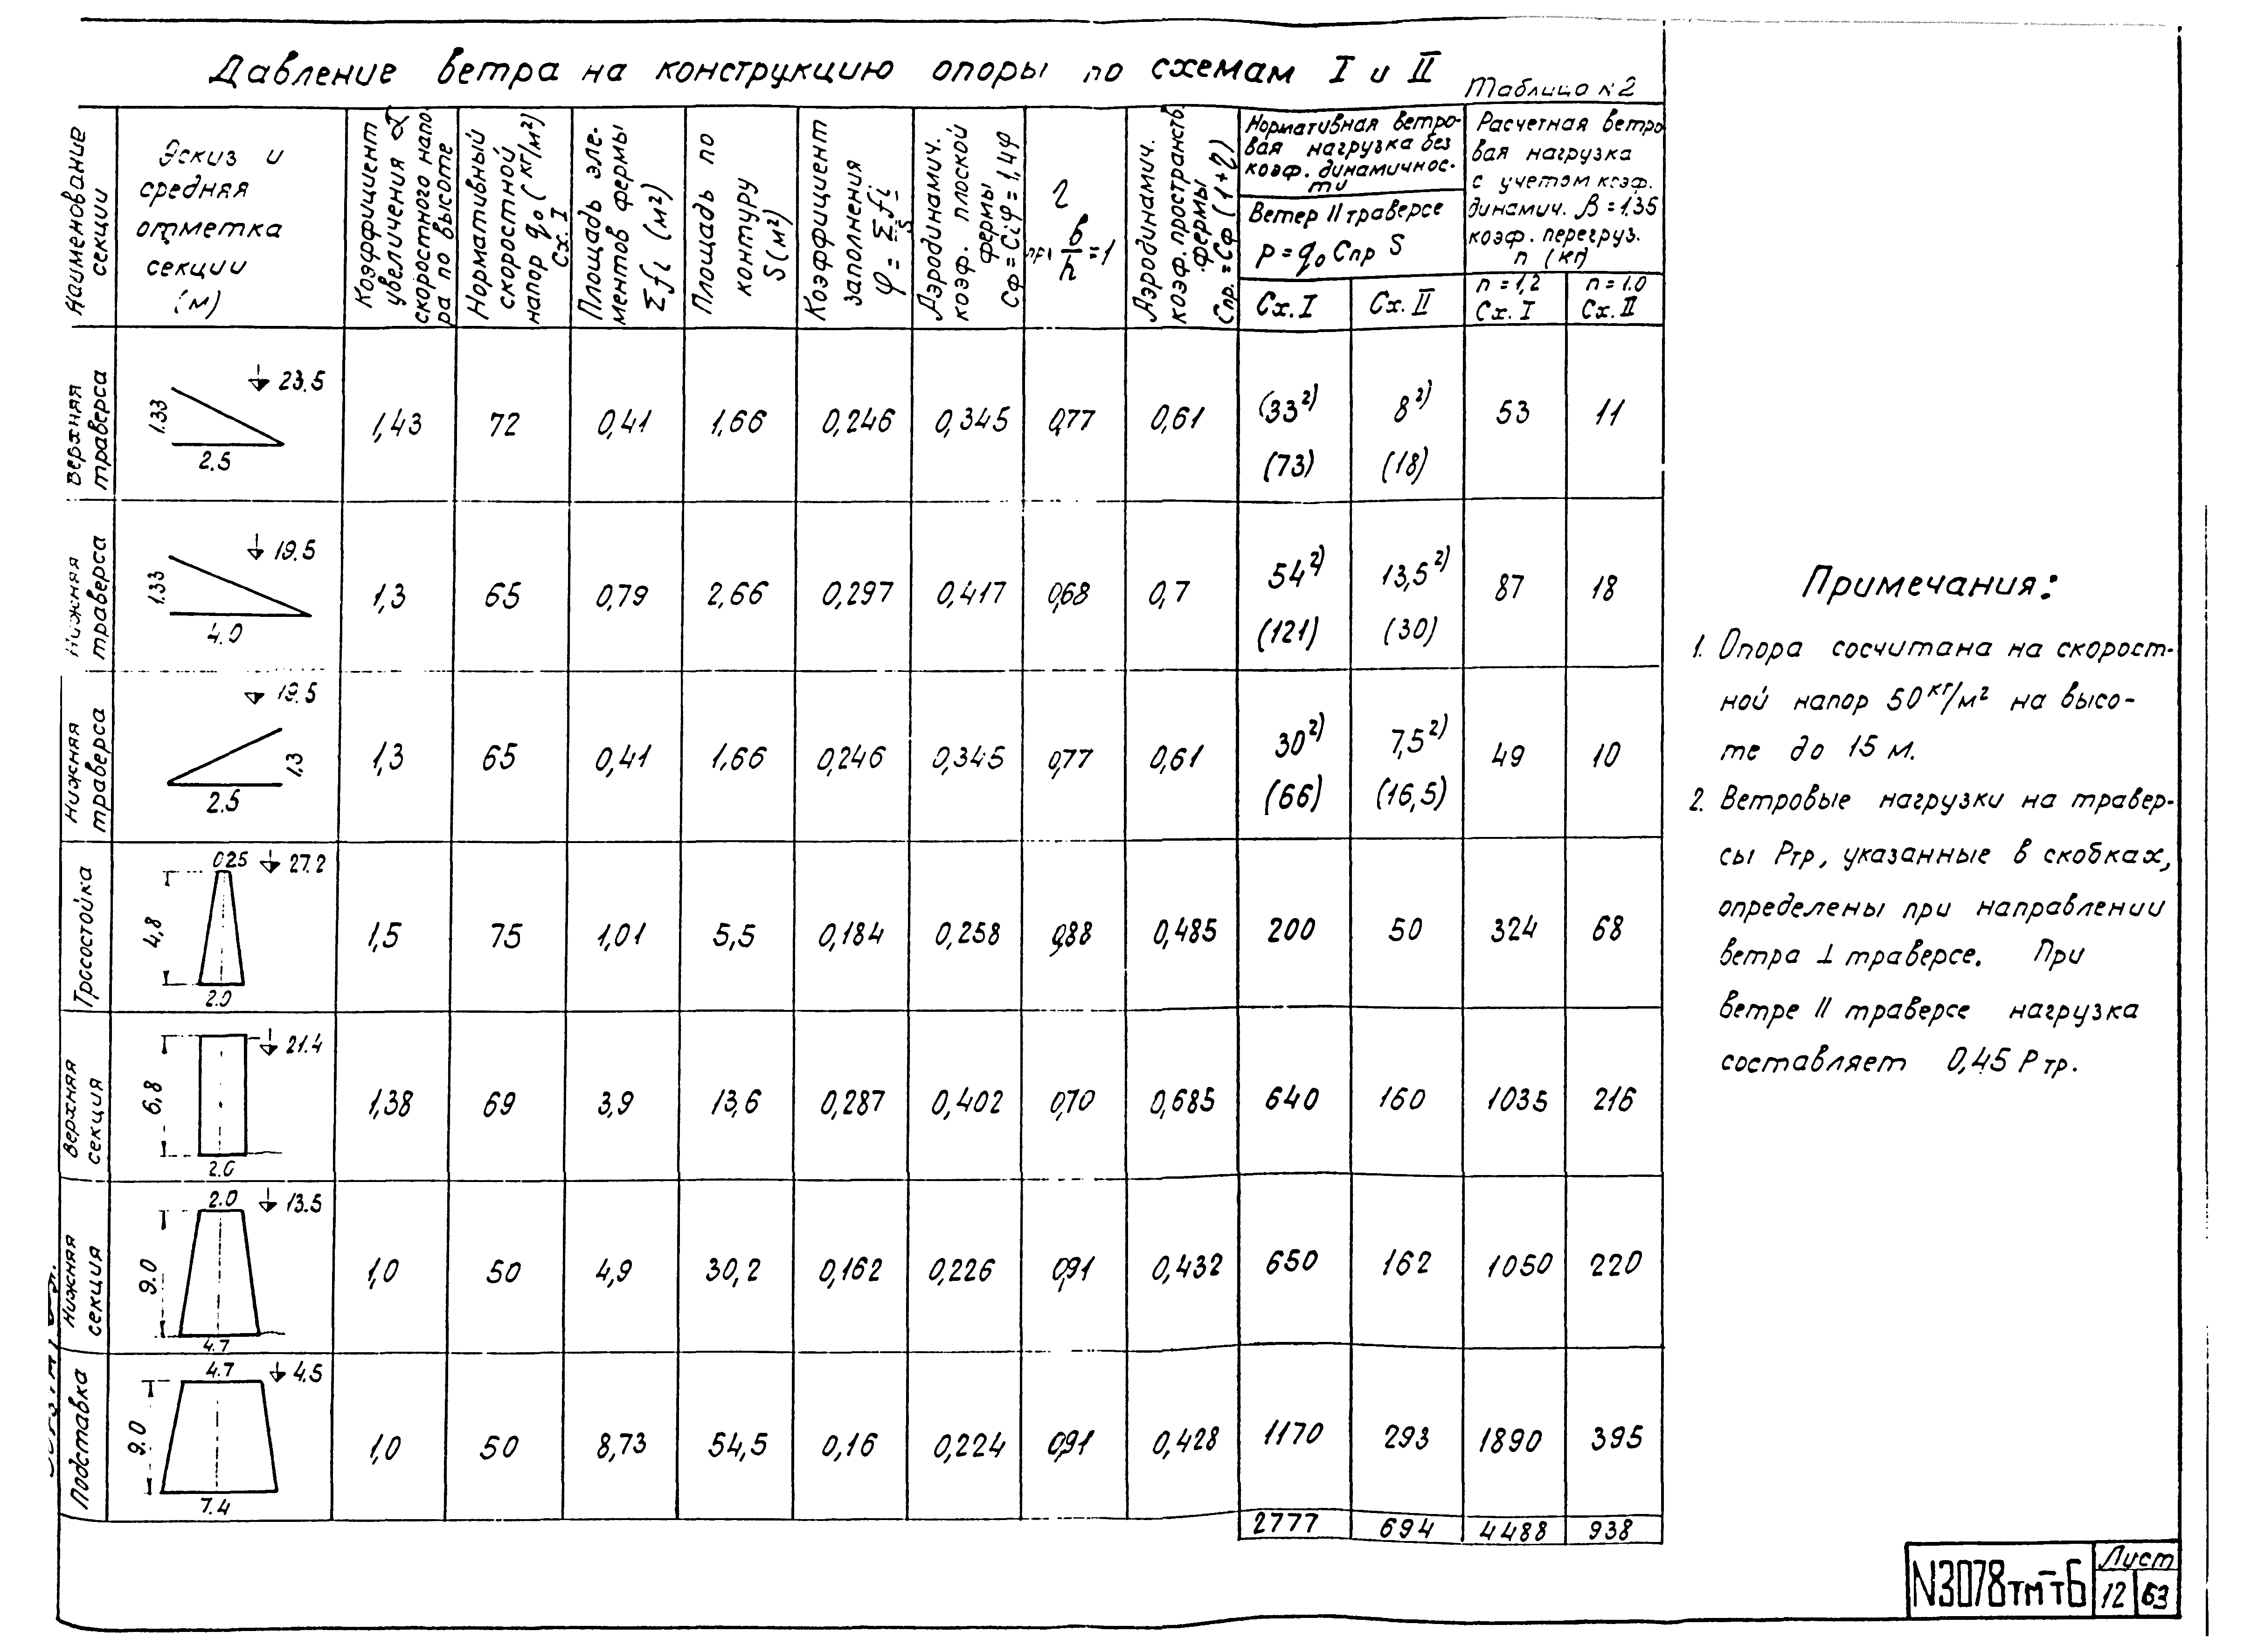 Давление ветра на конструкцию опоры по схемам I и II
Таблица №2
Наименование секции
Эскиз и средняя отметка секции (м)
Коэффициент увеличения α скоростного напора по высоте
Нормативный скоростной напор q₀ (кг/м²) Сх. I
Площадь элементов фермы Σfi (м²)
Площадь по контуру S (м²)
Коэффициент заполнения φ = Σfi/S
Аэродинамич. коэф. плоской фермы Сφ = Ciφ = 1,4φ
η при b/h = 1
Аэродинамич. коэф. пространств. фермы Спр. = Сφ (1+η)
Нормативная ветровая нагрузка без коэф. динамичности
Ветер II траверсе
P = q₀ Спр S
Сх. I
Сх. II
Расчетная ветровая нагрузка с учетом коэф. динамич. β = 1,35 коэф. перегруз. n (кг)
n = 1,2 Сх. I
n = 1.0 Сх. II
Верхняя траверса 1.33 2.5 23.5 1,43 72 0,41 1,66 0,246 0,345 0,77 0,61 (33²⁾ (73) 8²⁾ (18) 53 11
Нижняя траверса 1.33 4.0 19.5 1,3 65 0,79 2,66 0,297 0,417 0,68 0,7 54²⁾ (121) 13,5²⁾ (30) 87 18
Нижняя траверса 1,3 2.5 19.5 1,3 65 0,41 1,66 0,246 0,345 0,77 0,61 30²⁾ (66) 7,5²⁾ (16,5) 49 10
Тросостойка 025 27.2 4,8 2.0 1,5 75 1,01 5,5 0,184 0,258 0,88 0,485 200 50 324 68
Верхняя секция 21.4 6,8 2.0 1,38 69 3,9 13,6 0,287 0,402 0,70 0,685 640 160 1035 216
Нижняя секция 2.0 13.5 9.0 4.7 1,0 50 4,9 30,2 0,162 0,226 0,91 0,432 650 162 1050 220
Подставка 4.7 4,5 9.0 7.4 1,0 50 8,73 54,5 0,16 0,224 0,91 0,428 1170 293 1890 395
2777 694 4488 938
Примечания:
1. Опора сосчитана на скорост-
ной напор 50 кг/м² на высо-
те до 15 м.
2. Ветровые нагрузки на травер-
сы Ртр, указанные в скобках,
определены при направлении
ветра ⊥ траверсе. При
ветре II траверсе нагрузка
составляет 0,45 Ртр.
N3078тм-т6
Лист
12 63